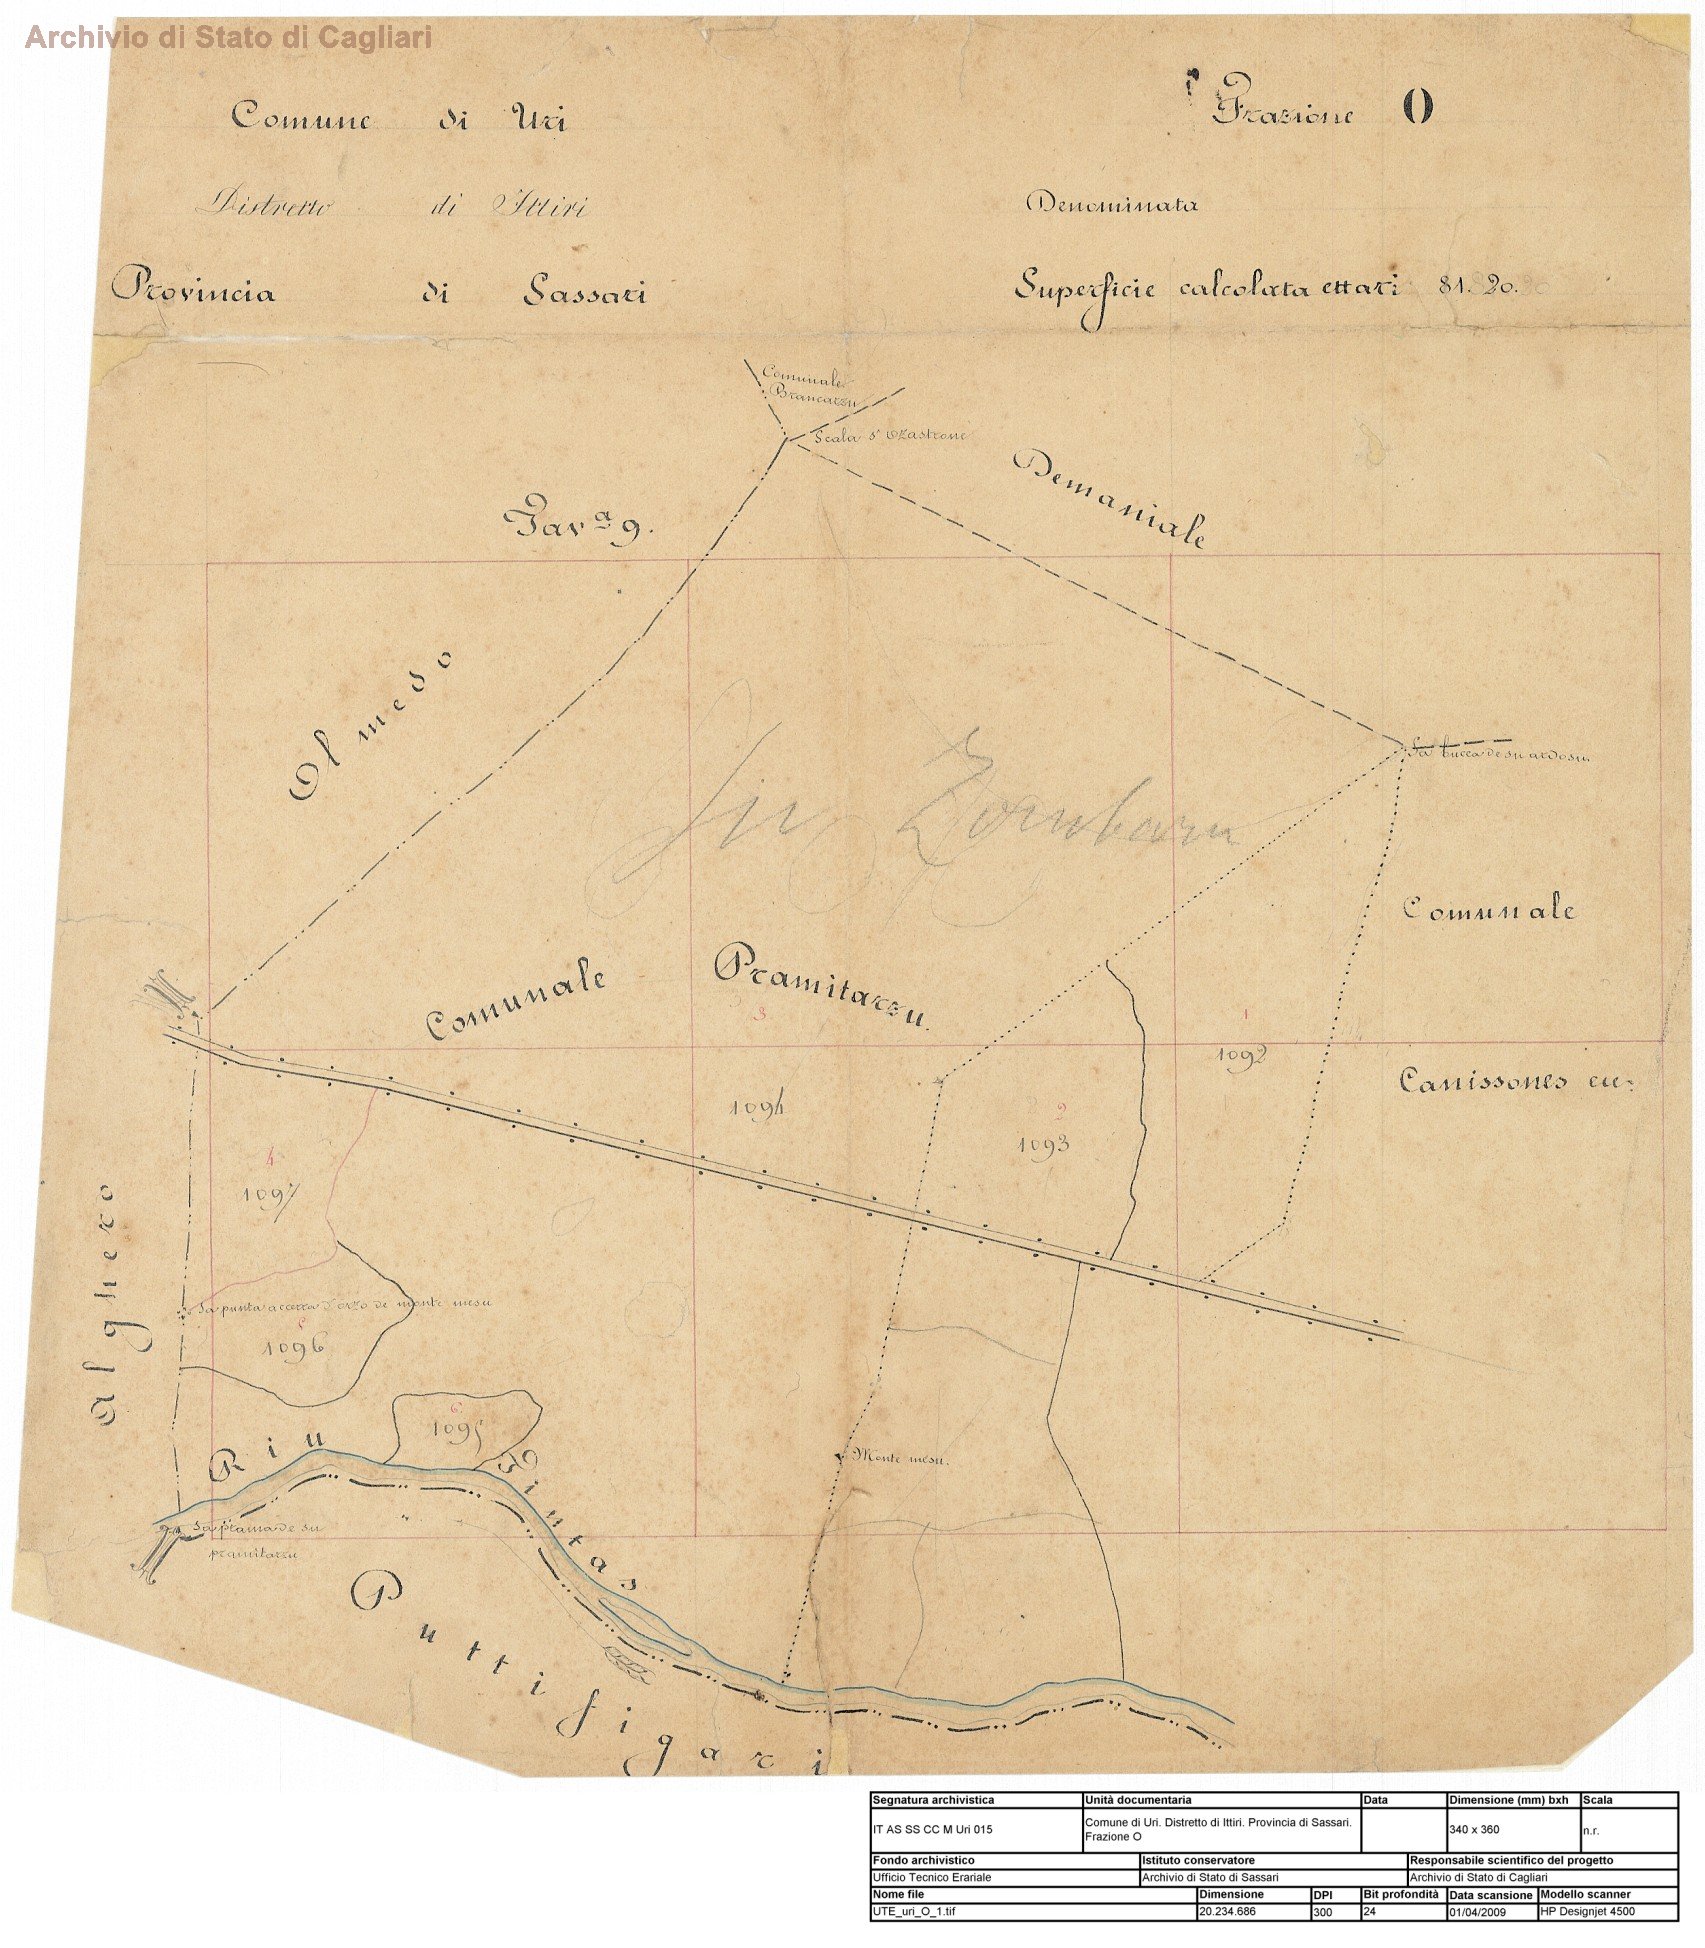 Archivio di Stato di Cagliari
Comune di Uri
Frazione O
Distretto di Ittiri
Denominata
Provincia di Sassari
Superficie calcolata ettari 81.20.
Comunale
Brancazzu
Scala s'ozastrone
Demaniale
Tavª 9.
Olmedo
Sa bucca de su ardosu
Comunale
Comunale Pramitazzu.
3
1
1092
Canissones ec:
1094
2
1093
4
1097
Alghero
Sa punta accerra d'orzo de monte mesu
5
1096
6
1095
Riu Pintas
Monte mesu.
Sa prama de su
pramitazzu
Puttifigari
Segnatura archivistica Unità documentaria Data Dimensione (mm) bxh Scala
IT AS SS CC M Uri 015 Comune di Uri. Distretto di Ittiri. Provincia di Sassari.
Frazione O 340 x 360 n.r.
Fondo archivistico Istituto conservatore Responsabile scientifico del progetto
Ufficio Tecnico Erariale Archivio di Stato di Sassari Archivio di Stato di Cagliari
Nome file Dimensione DPI Bit profondità Data scansione Modello scanner
UTE_uri_O_1.tif 20.234.686 300 24 01/04/2009 HP Designjet 4500